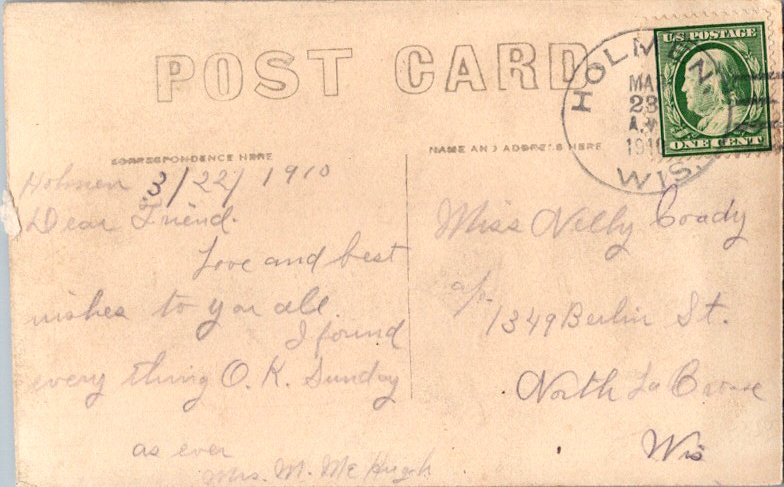 POST CARD
CORRESPONDENCE HERE
NAME AND ADDRESS HERE
U.S. POSTAGE
ONE CENT
HOLMEN
MAR
23
A.M.
1910
WIS.
Holmen 3/22/1910
Dear Friend.
Love and best
wishes to you all.
I found
every thing O.K. Sunday
as ever
Mrs. M. McHugh
Miss Nelly Coady
1349 Berlin St.
North La Crosse
Wis